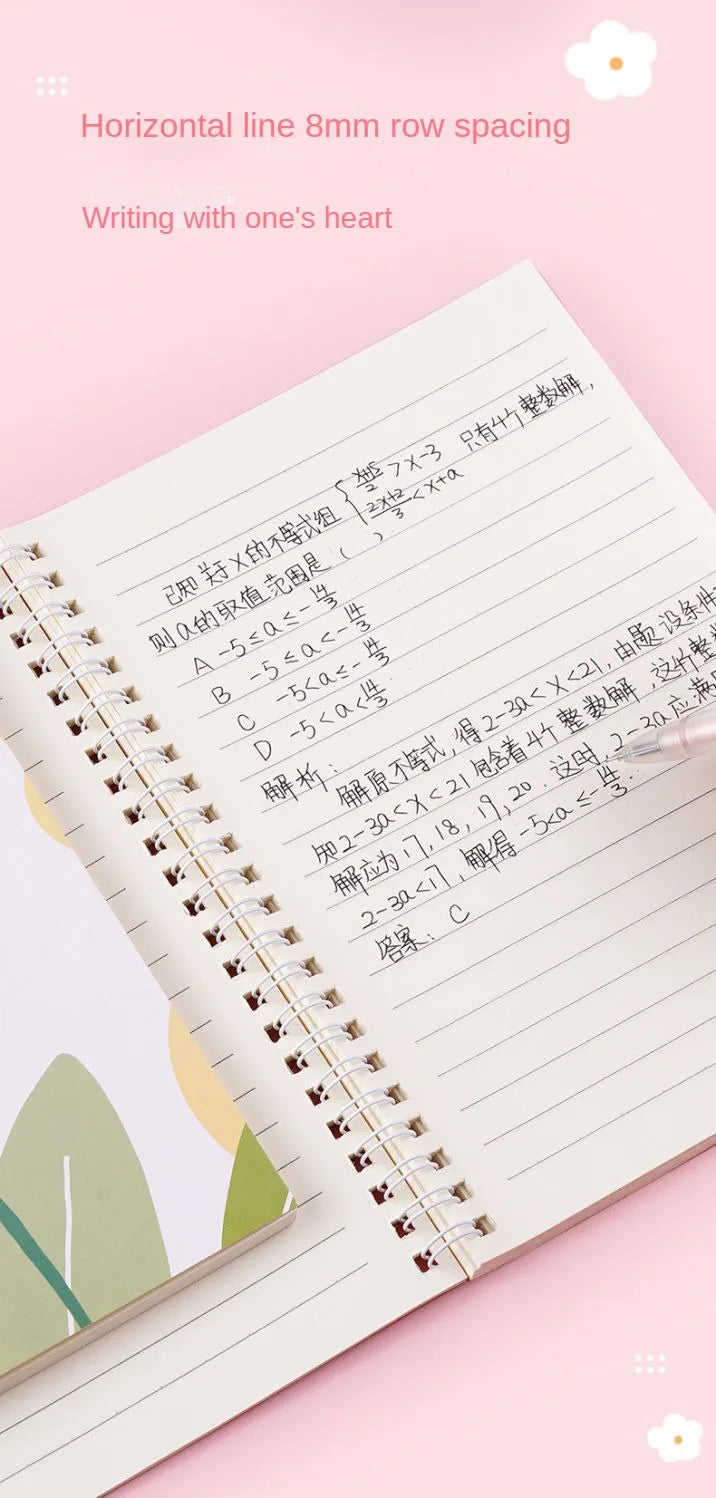 Horizontal line 8mm row spacing
Writing with one's heart
已知关于x的不等式组 { x+5/2 > x-3 只有4个整数解,
2x+2/3 < x+a
则a的取值范围是 ( )
A -5≤a≤-14/3
B -5≤a<-14/3
C -5<a≤-14/3
D -5<a<14/3
解析:
解原不等式,得2-3a<x<21,由题设条件
知2-3a<x<21包含着4个整数解,这4个整
解应为17,18,19,20.这时,2-3a应满
2-3a<17,解得-5<a≤-14/3.
答案: C